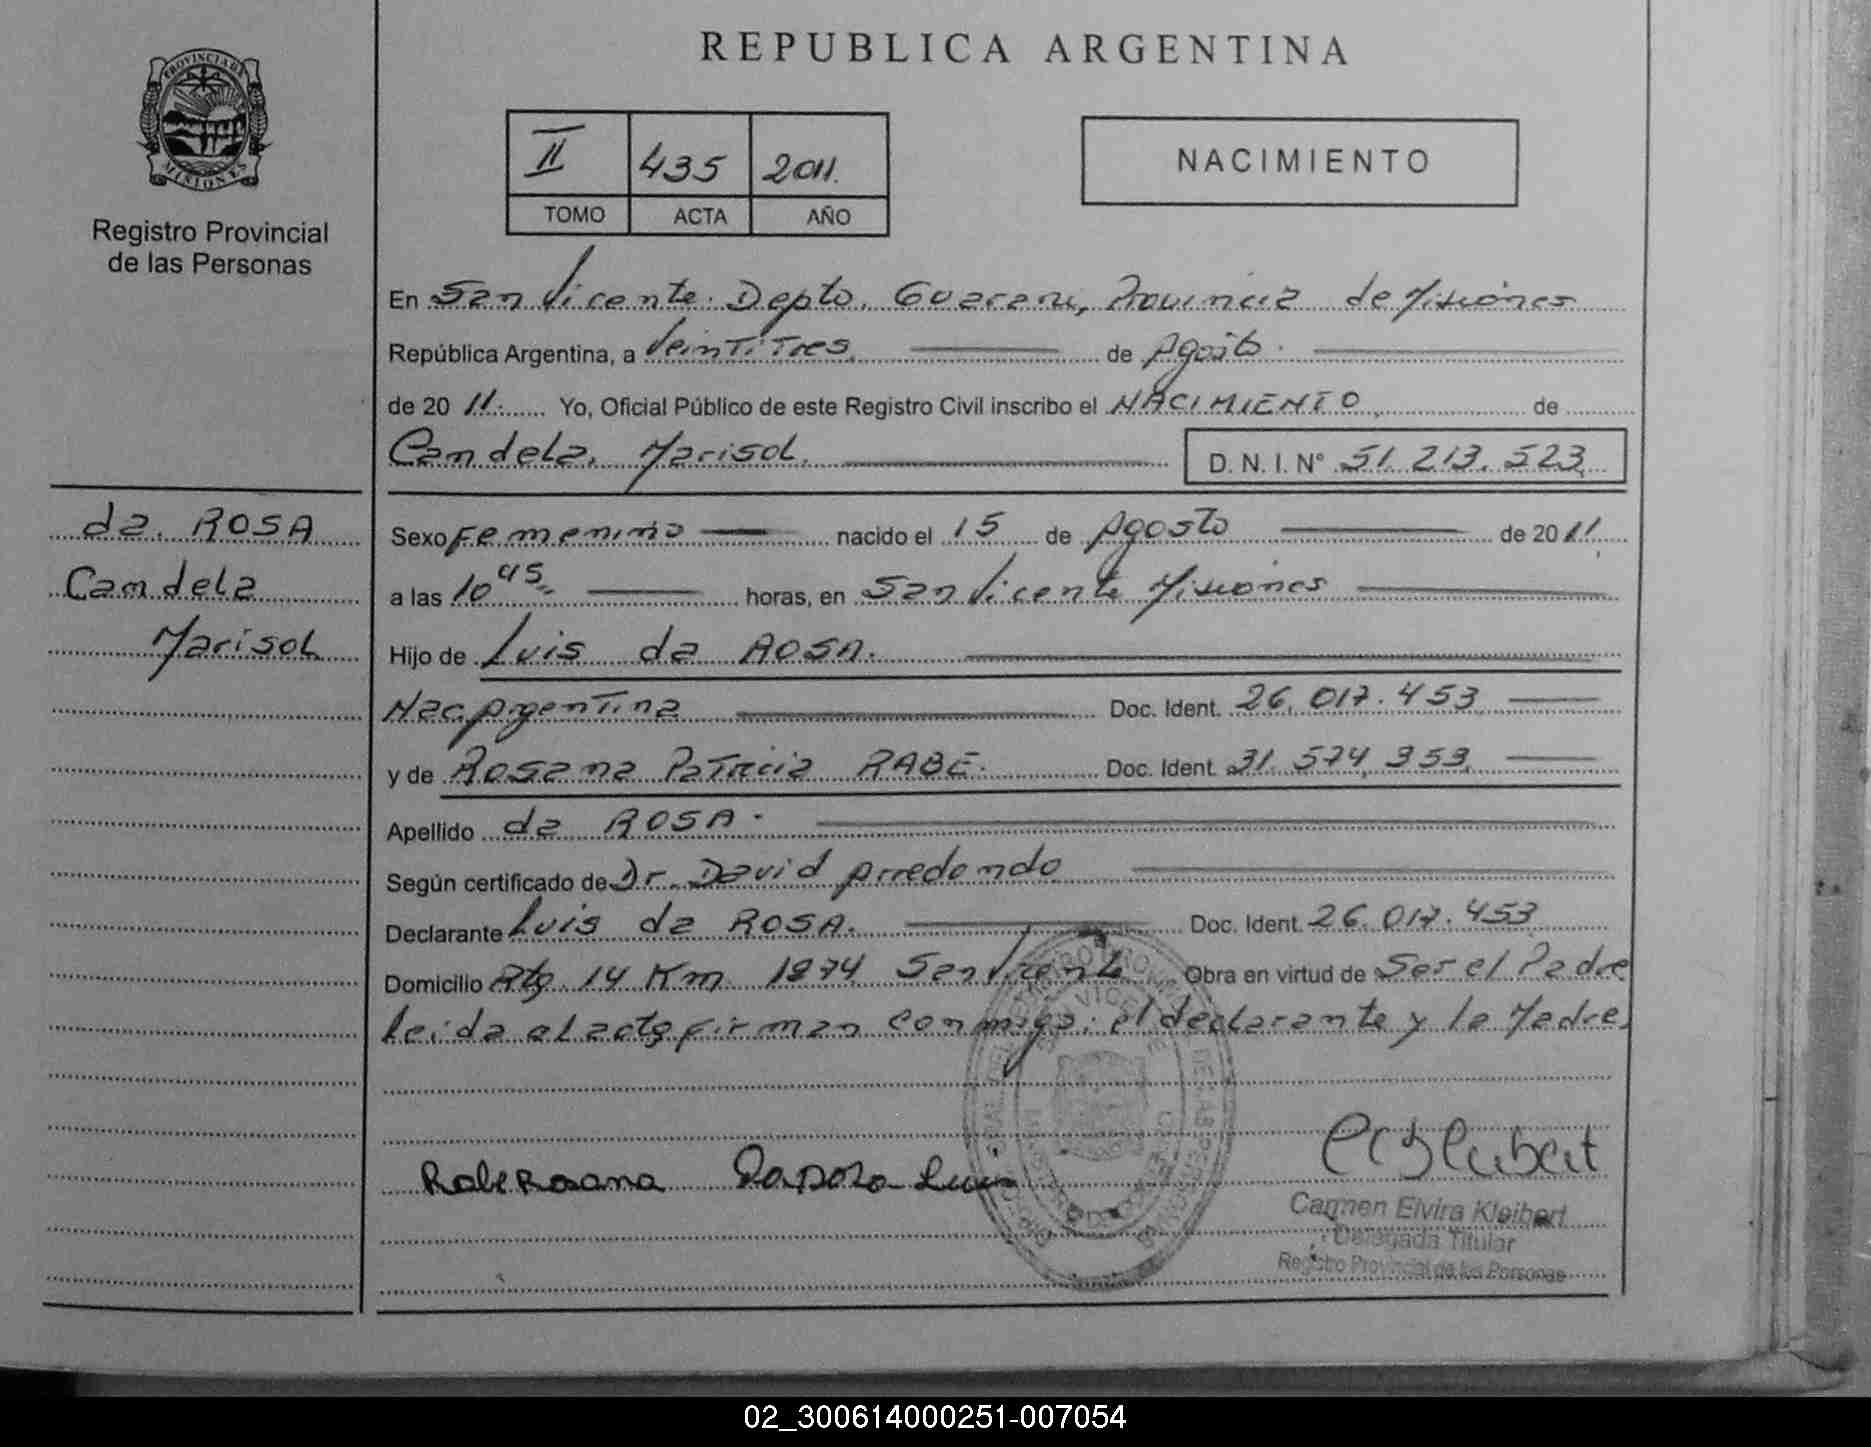 REPUBLICA ARGENTINA
PROVINCIA DE
MISIONES
Registro Provincial
de las Personas
II 435 2011.
TOMO ACTA AÑO
NACIMIENTO
En San Vicente. Depto. Guarani, Provincia de Misiones
República Argentina, a Veintitres de Agosto.
de 20 11. Yo, Oficial Público de este Registro Civil inscribo el NACIMIENTO, de
Candela, Marisol. D. N. I. N° 51.213.523
da. ROSA
Candela
Marisol
Sexo Femenino nacido el 15 de Agosto de 2011
a las 10 45 horas, en San Vicente Misiones
Hijo de Luis da ROSA.
Nac. Argentina Doc. Ident. 26.017.453
y de Rosana Patricia RABE. Doc. Ident. 31.574.353
Apellido da ROSA.
Según certificado de Dr. David Arredondo
Declarante Luis da ROSA. Doc. Ident. 26.017.453
Domicilio Rta. 14 Km 1274 San Vicente Obra en virtud de Ser el Padre
Leida el acta firman conmigo: el declarante y la Madre.
Rabe Rosana Darosa Luis
Carmen Elvira Kleibert
Delegada Titular
Registro Provincial de las Personas
02_300614000251-007054